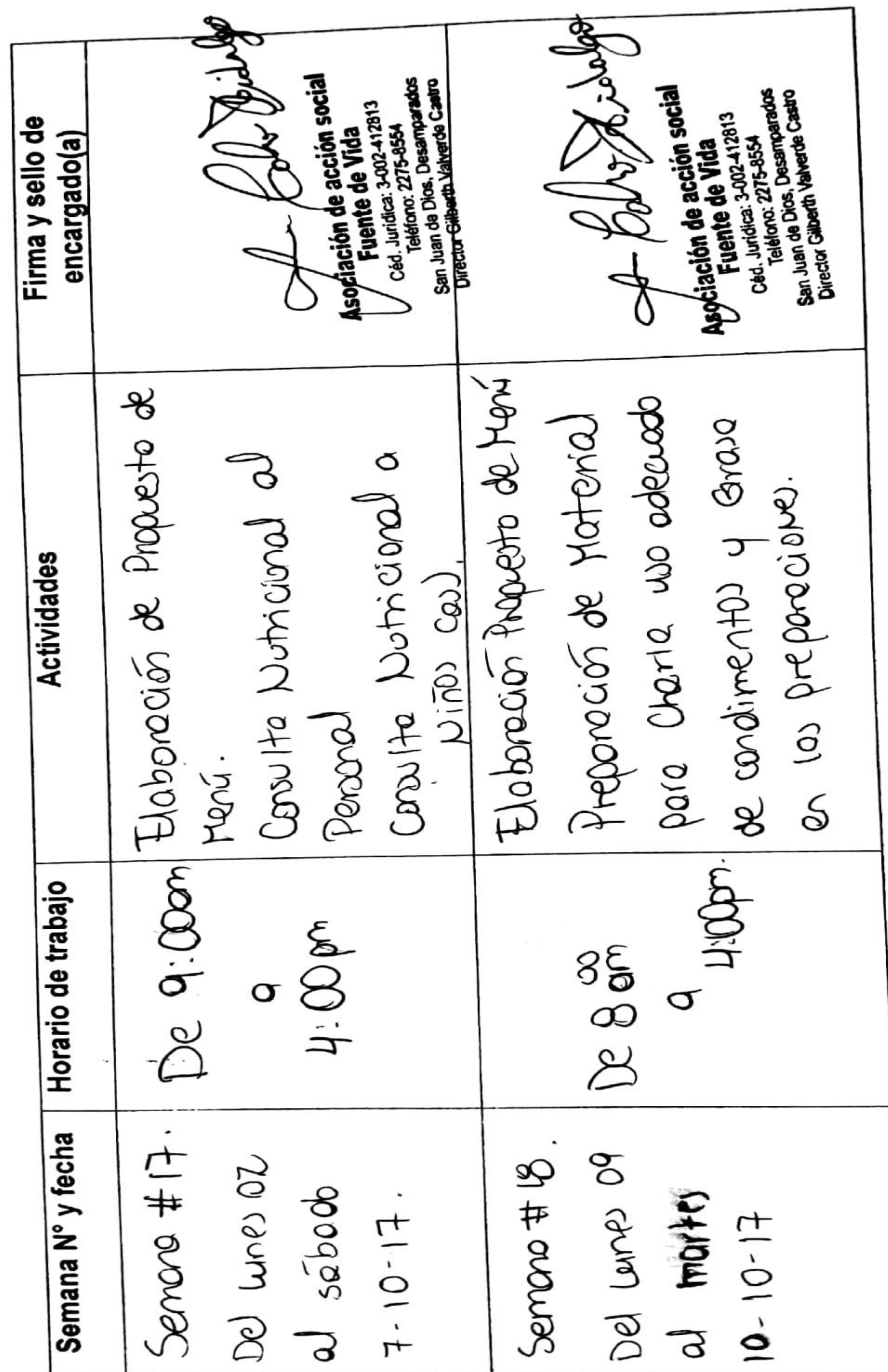 Semana N° y fecha
Horario de trabajo
Actividades
Firma y sello de
encargado(a)
Semana #17.
Del Lunes 02
al sábado
7-10-17.
De 9:00am
a
4:00pm
Elaboración de Propuesta de
Menú.
Consulta Nutricional al
Personal
Consulta Nutricional a
Niños
Asociación de acción social
Fuente de Vida
Céd. Jurídica: 3-002-412813
Teléfono: 2275-8554
San Juan de Dios, Desamparados
Director Gilberth Valverde Castro
Semana #18.
Del Lunes 09
al martes
10-10-17
De 8:00 am
a
4:00pm.
Elaboración Propuesta de Menú
Preparación de Material
para Charla uso adecuado
de condimentos y Grasa
en las preparaciones.
Asociación de acción social
Fuente de Vida
Céd. Jurídica: 3-002-412813
Teléfono: 2275-8554
San Juan de Dios, Desamparados
Director Gilberth Valverde Castro